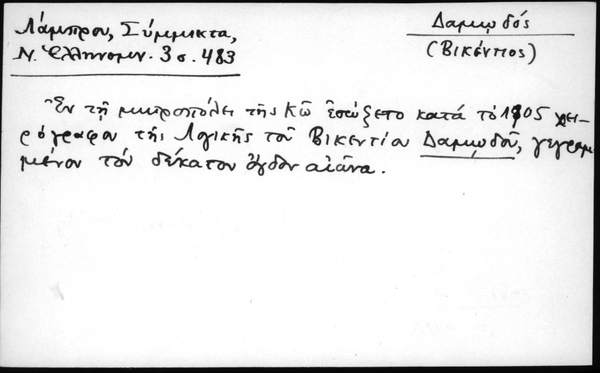 Λάμπρου, Σύμμικτα,
Ν. Ἑλληνομν. 3 σ. 483
Δαμῳδός
(Βικέντιος)
Ἐν τῇ μητροπόλει τῆς Κῶ ἐσώζετο κατά τὸ 1905 χει-
ρόγραφον τῆς Λογικῆς τοῦ Βικεντίου Δαμῳδοῦ, γεγραμ-
μένον τόν δέκατον ὄγδοον αἰῶνα.